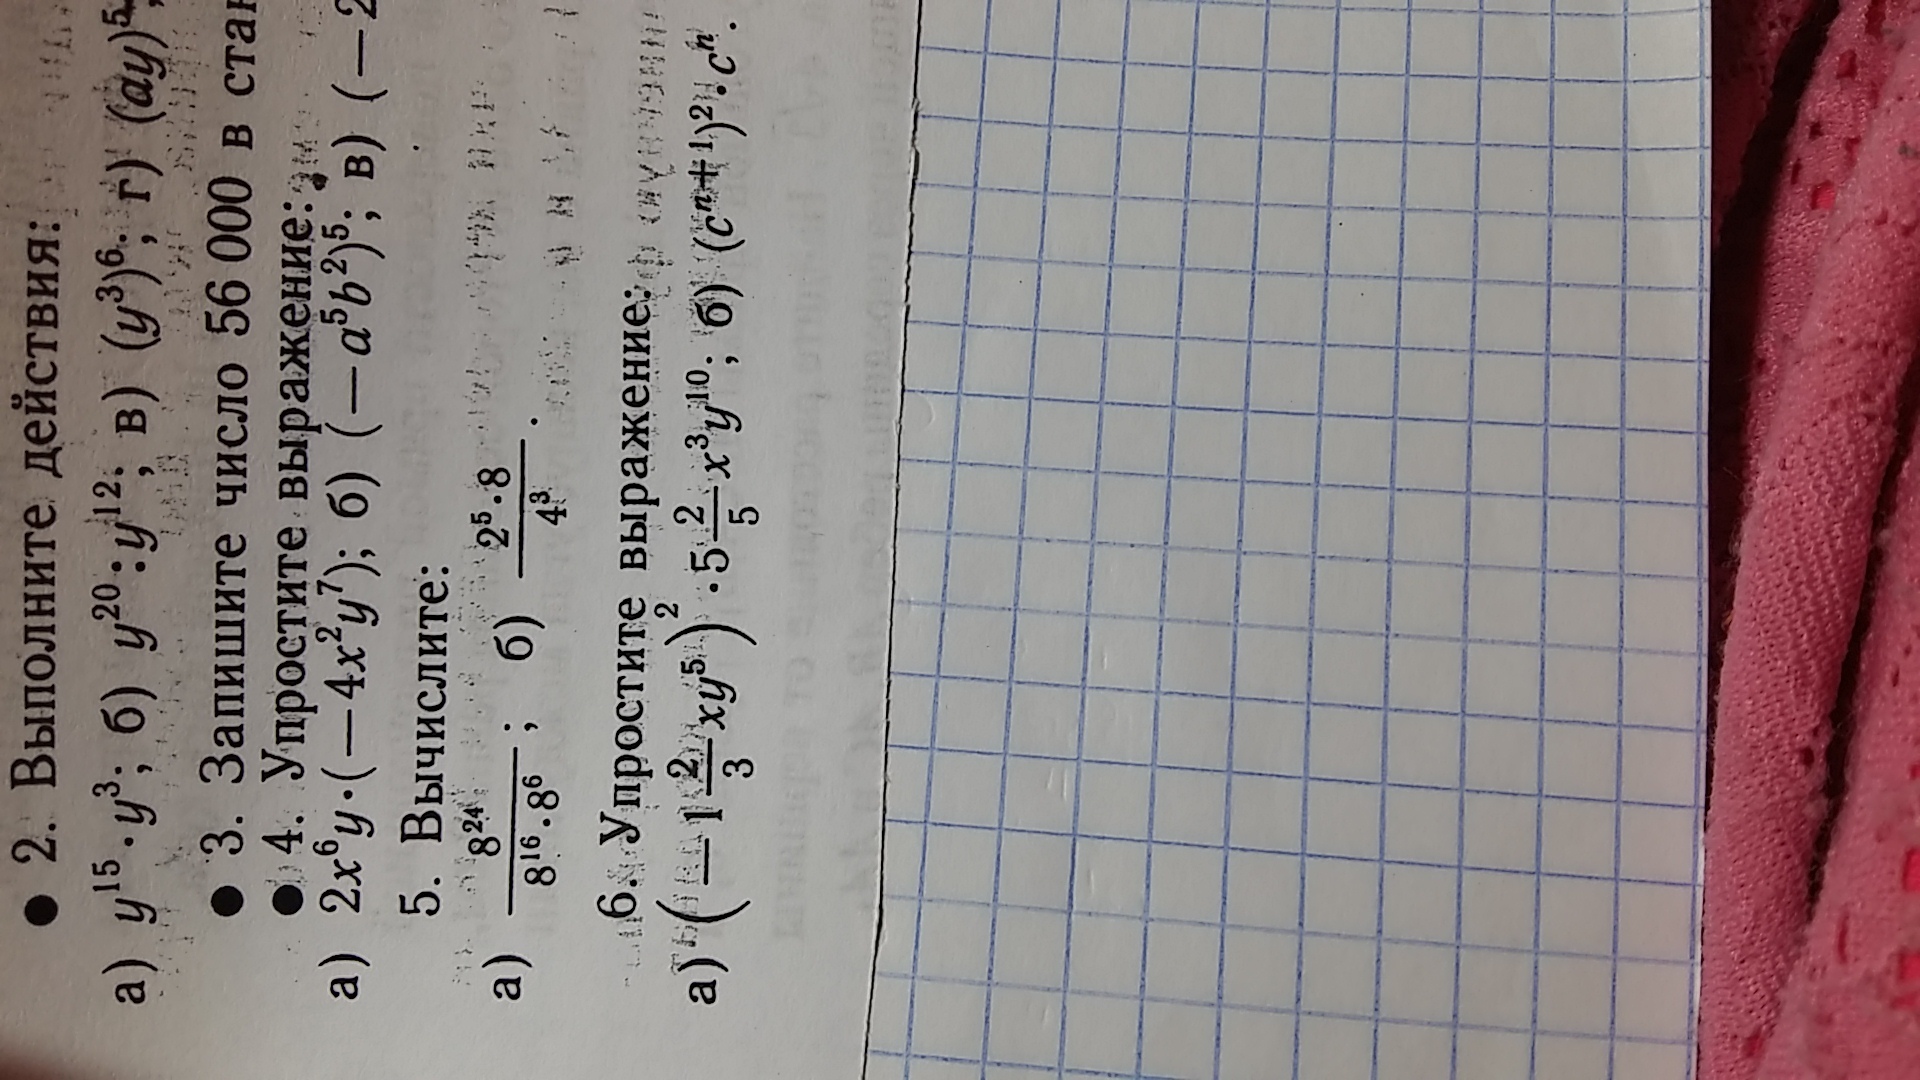 • 2. Выполните действия:
а) y¹⁵ · y³; б) y²⁰ : y¹²; в) (y³)⁶; г) (ay)⁵
• 3. Запишите число 56 000 в стан
• 4. Упростите выражение:
а) 2x⁶y · (—4x²y⁷); б) (—a⁵b²)⁵; в) (—2
5. Вычислите:
а) 8²⁴ / (8¹⁶ · 8⁶); б) (2⁵ · 8) / 4³.
6. Упростите выражение:
а) (—1 2/3 xy⁵)² · 5 2/5 x³y¹⁰; б) (cⁿ⁺¹)² · cⁿ.